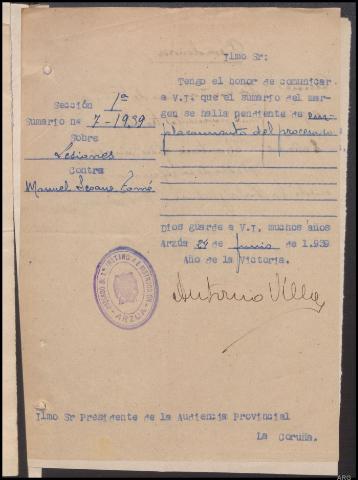 Ilmo Sr:
Tengo el honor de comunicar
a V.I. que el sumario del mar-
gen se halla pendiente de em-
plazamiento del procesado
Sección 1ª
Sumario nº 7-1939
Sobre
Lesiones
Contra
Manuel Seoane Tomé
Dios guarde a V.I. muchos años
Arzúa 24 de junio de 1.939
Año de la Victoria.
Antonio Villa
ARZUA
Ilmo Sr Presidente de la Audiencia Provincial
La Coruña.
ARG